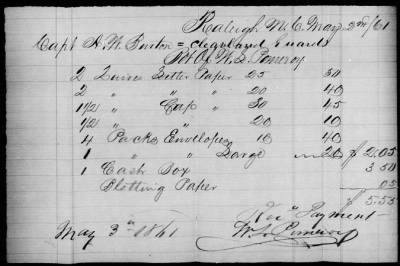 Raleigh N.C. May 3rd/61
Capt A. W. Burton = Cleaveland Guards
Bot Of W. L. Pomeroy
2 Quires Letter Paper 25 50
2 " " " 20 40
1 1/2 " Cap " 30 45
1/2 " " " 20 10
4 Packs Envelopes 10 40
1 " " Large 20 $ 2.05
1 Cash Box 3 50
Blotting Paper 05
$ 5.55
Rec'd Payment
May 3rd 1861 W. L. Pomeroy